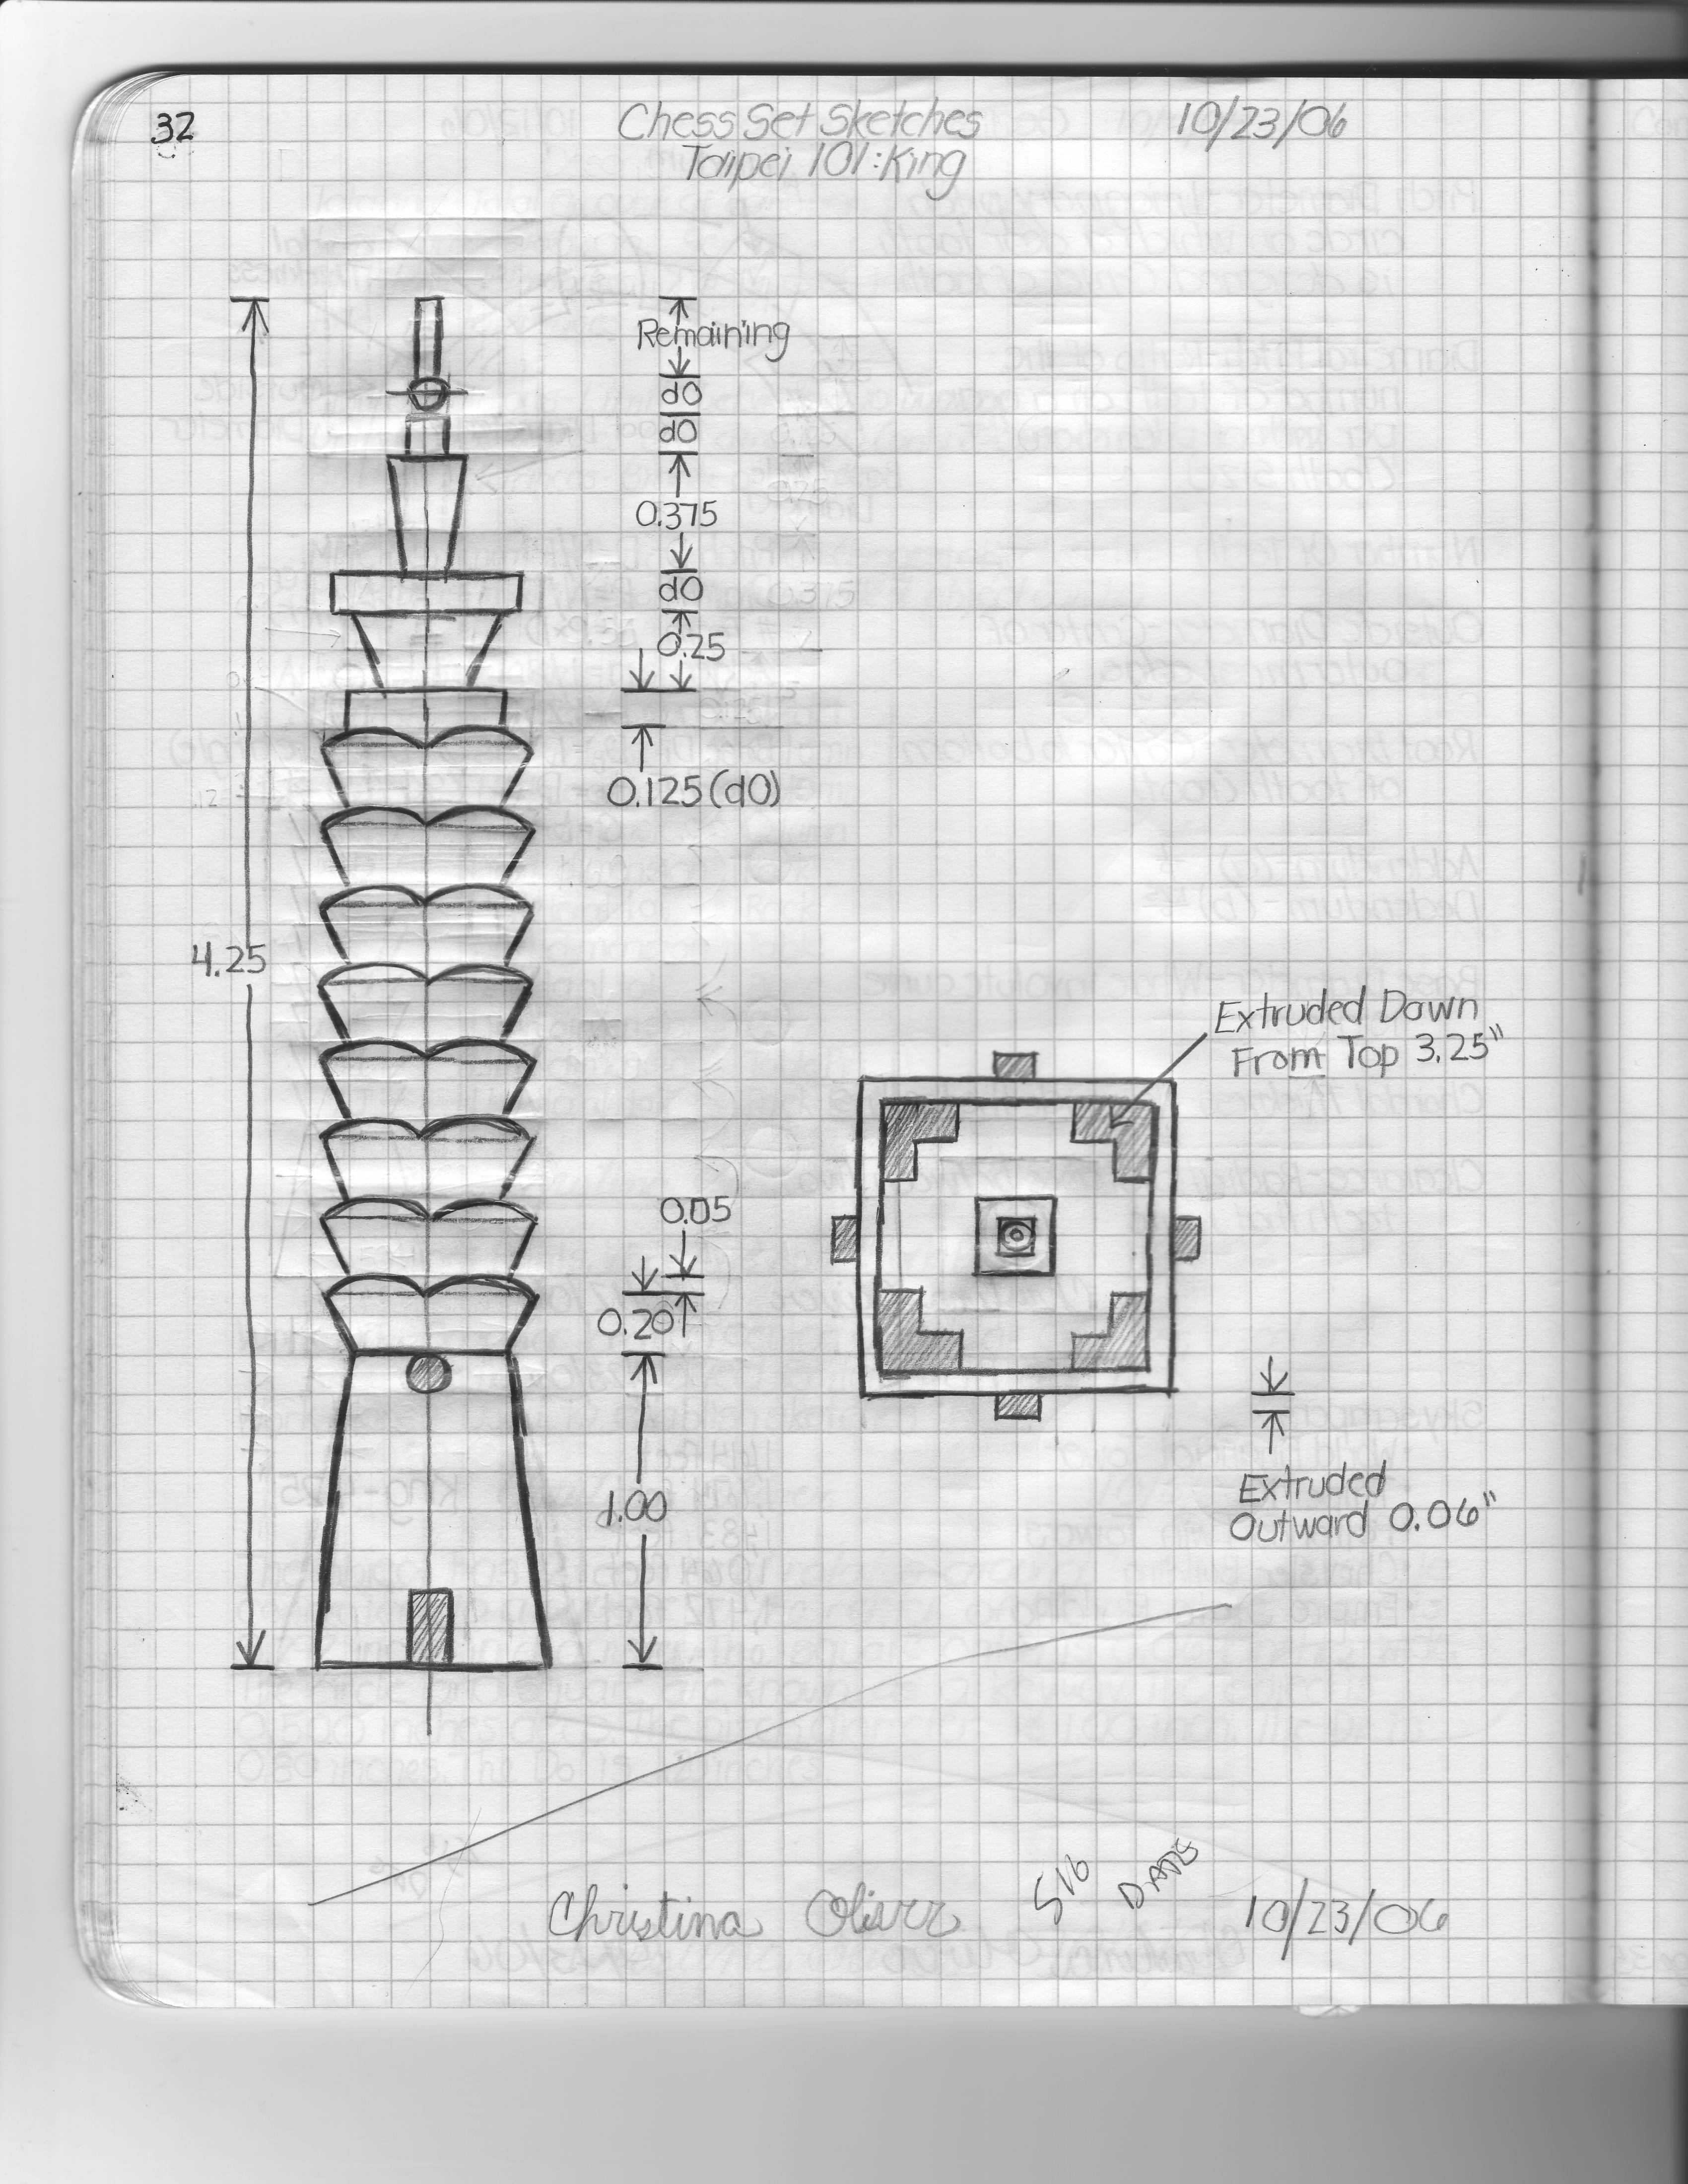 32
Chess Set Sketches
Taipei 101:King
10/23/06
Remaining
d0
d0
0.375
d0
0.25
0.125(d0)
4.25
Extruded Down
From Top 3.25"
0.05
0.20
1.00
Extruded
Outward 0.06"
Christina Oliver
SIG
DATE
10/23/06